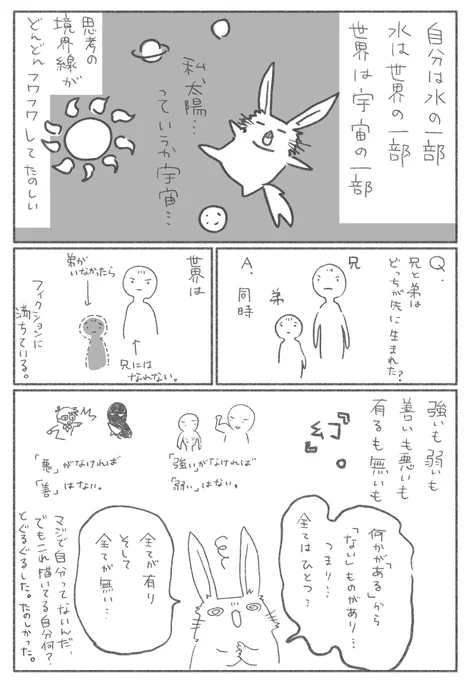 自分は水の一部
水は世界の一部
世界は宇宙の一部
私、太陽…
っていうか宇宙…
思考の
境界線が
どんどん
フワフワしてたのしい
Q.
兄と弟は
どっちが先に生まれた?
兄
弟
A.
同時
世界は
弟が
いなかったら
兄には
なれない。
フィクションに
満ちている。
強いも弱いも
善いも悪いも
有るも無いも
『幻』。
「強い」がなければ
「弱い」はない。
「悪」がなければ
「善」はない。
何かが「ある」から
「ない」ものがあり…
つまり…
全てはひとつ…
全てが有り
そして
全てが無い…
マジで自分ってないんだ、
でもこれ描いてる自分何?
とぐるぐるした。たのしかった。